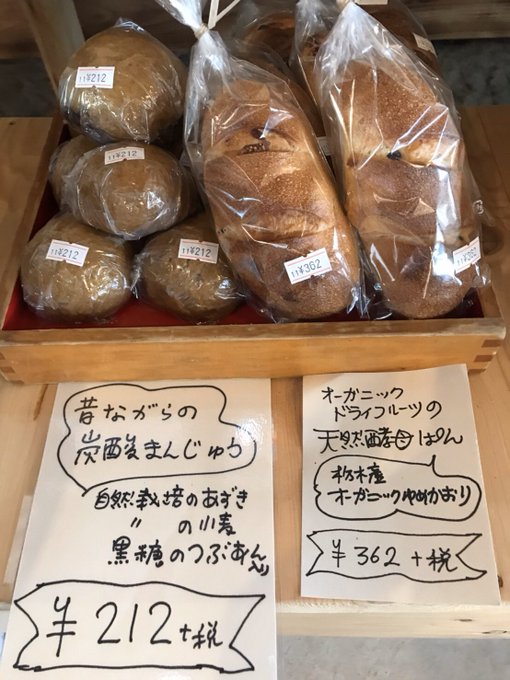 11¥212
11¥212
11¥212
11¥212
11¥362
¥362
昔ながらの
炭酸まんじゅう
自然栽培のあずき
〃 の小麦
黒糖のつぶあん入り
¥212+税
オーガニック
ドライフルーツの
天然酵母ぱん
栃木産
オーガニックゆめかおり
¥362+税